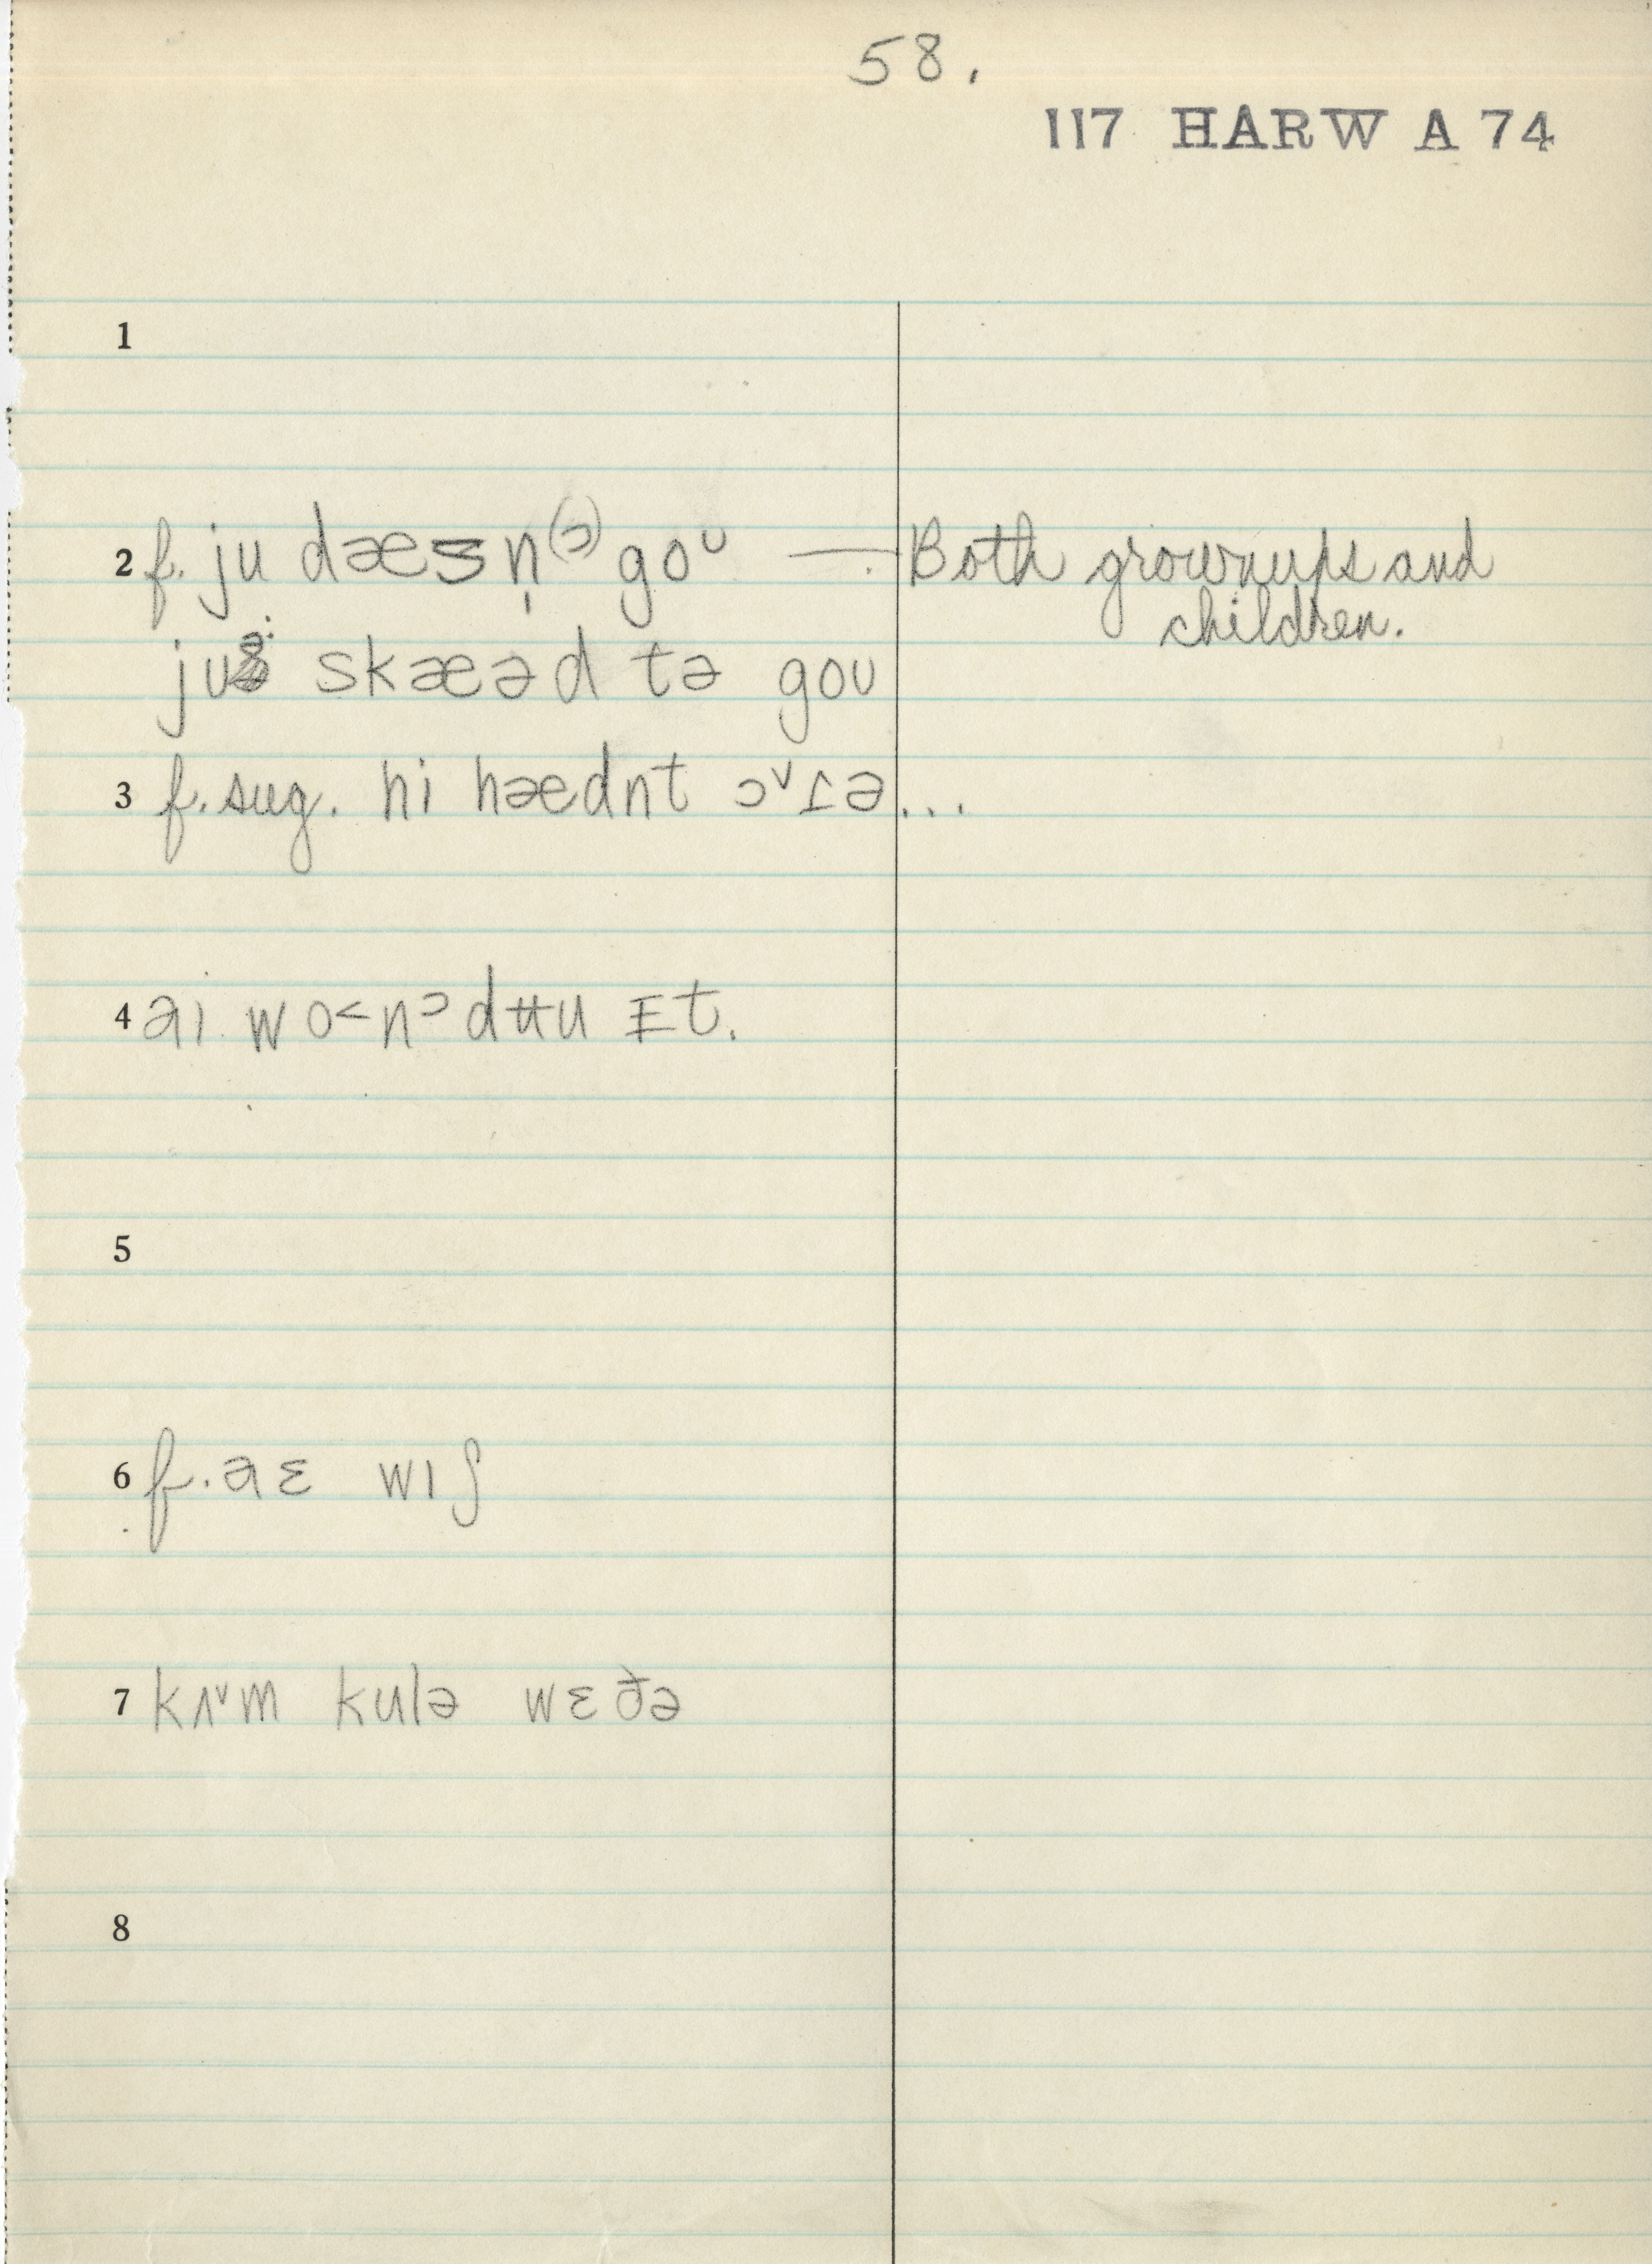 58.
117 HARW A 74
1
2 f. ju dæsn̩⁽ᵓ⁾ goᶷ — Both grownups and
children.
ju skæəd tə gou
3 f. sug. hi hædnt ɔ˅ɪə...
4 aɪ wo˂nᵓ dʉu ɪt.
5
6 f. aɛ wɪʃ
7 kʌ˅m kulə wɛðə
8